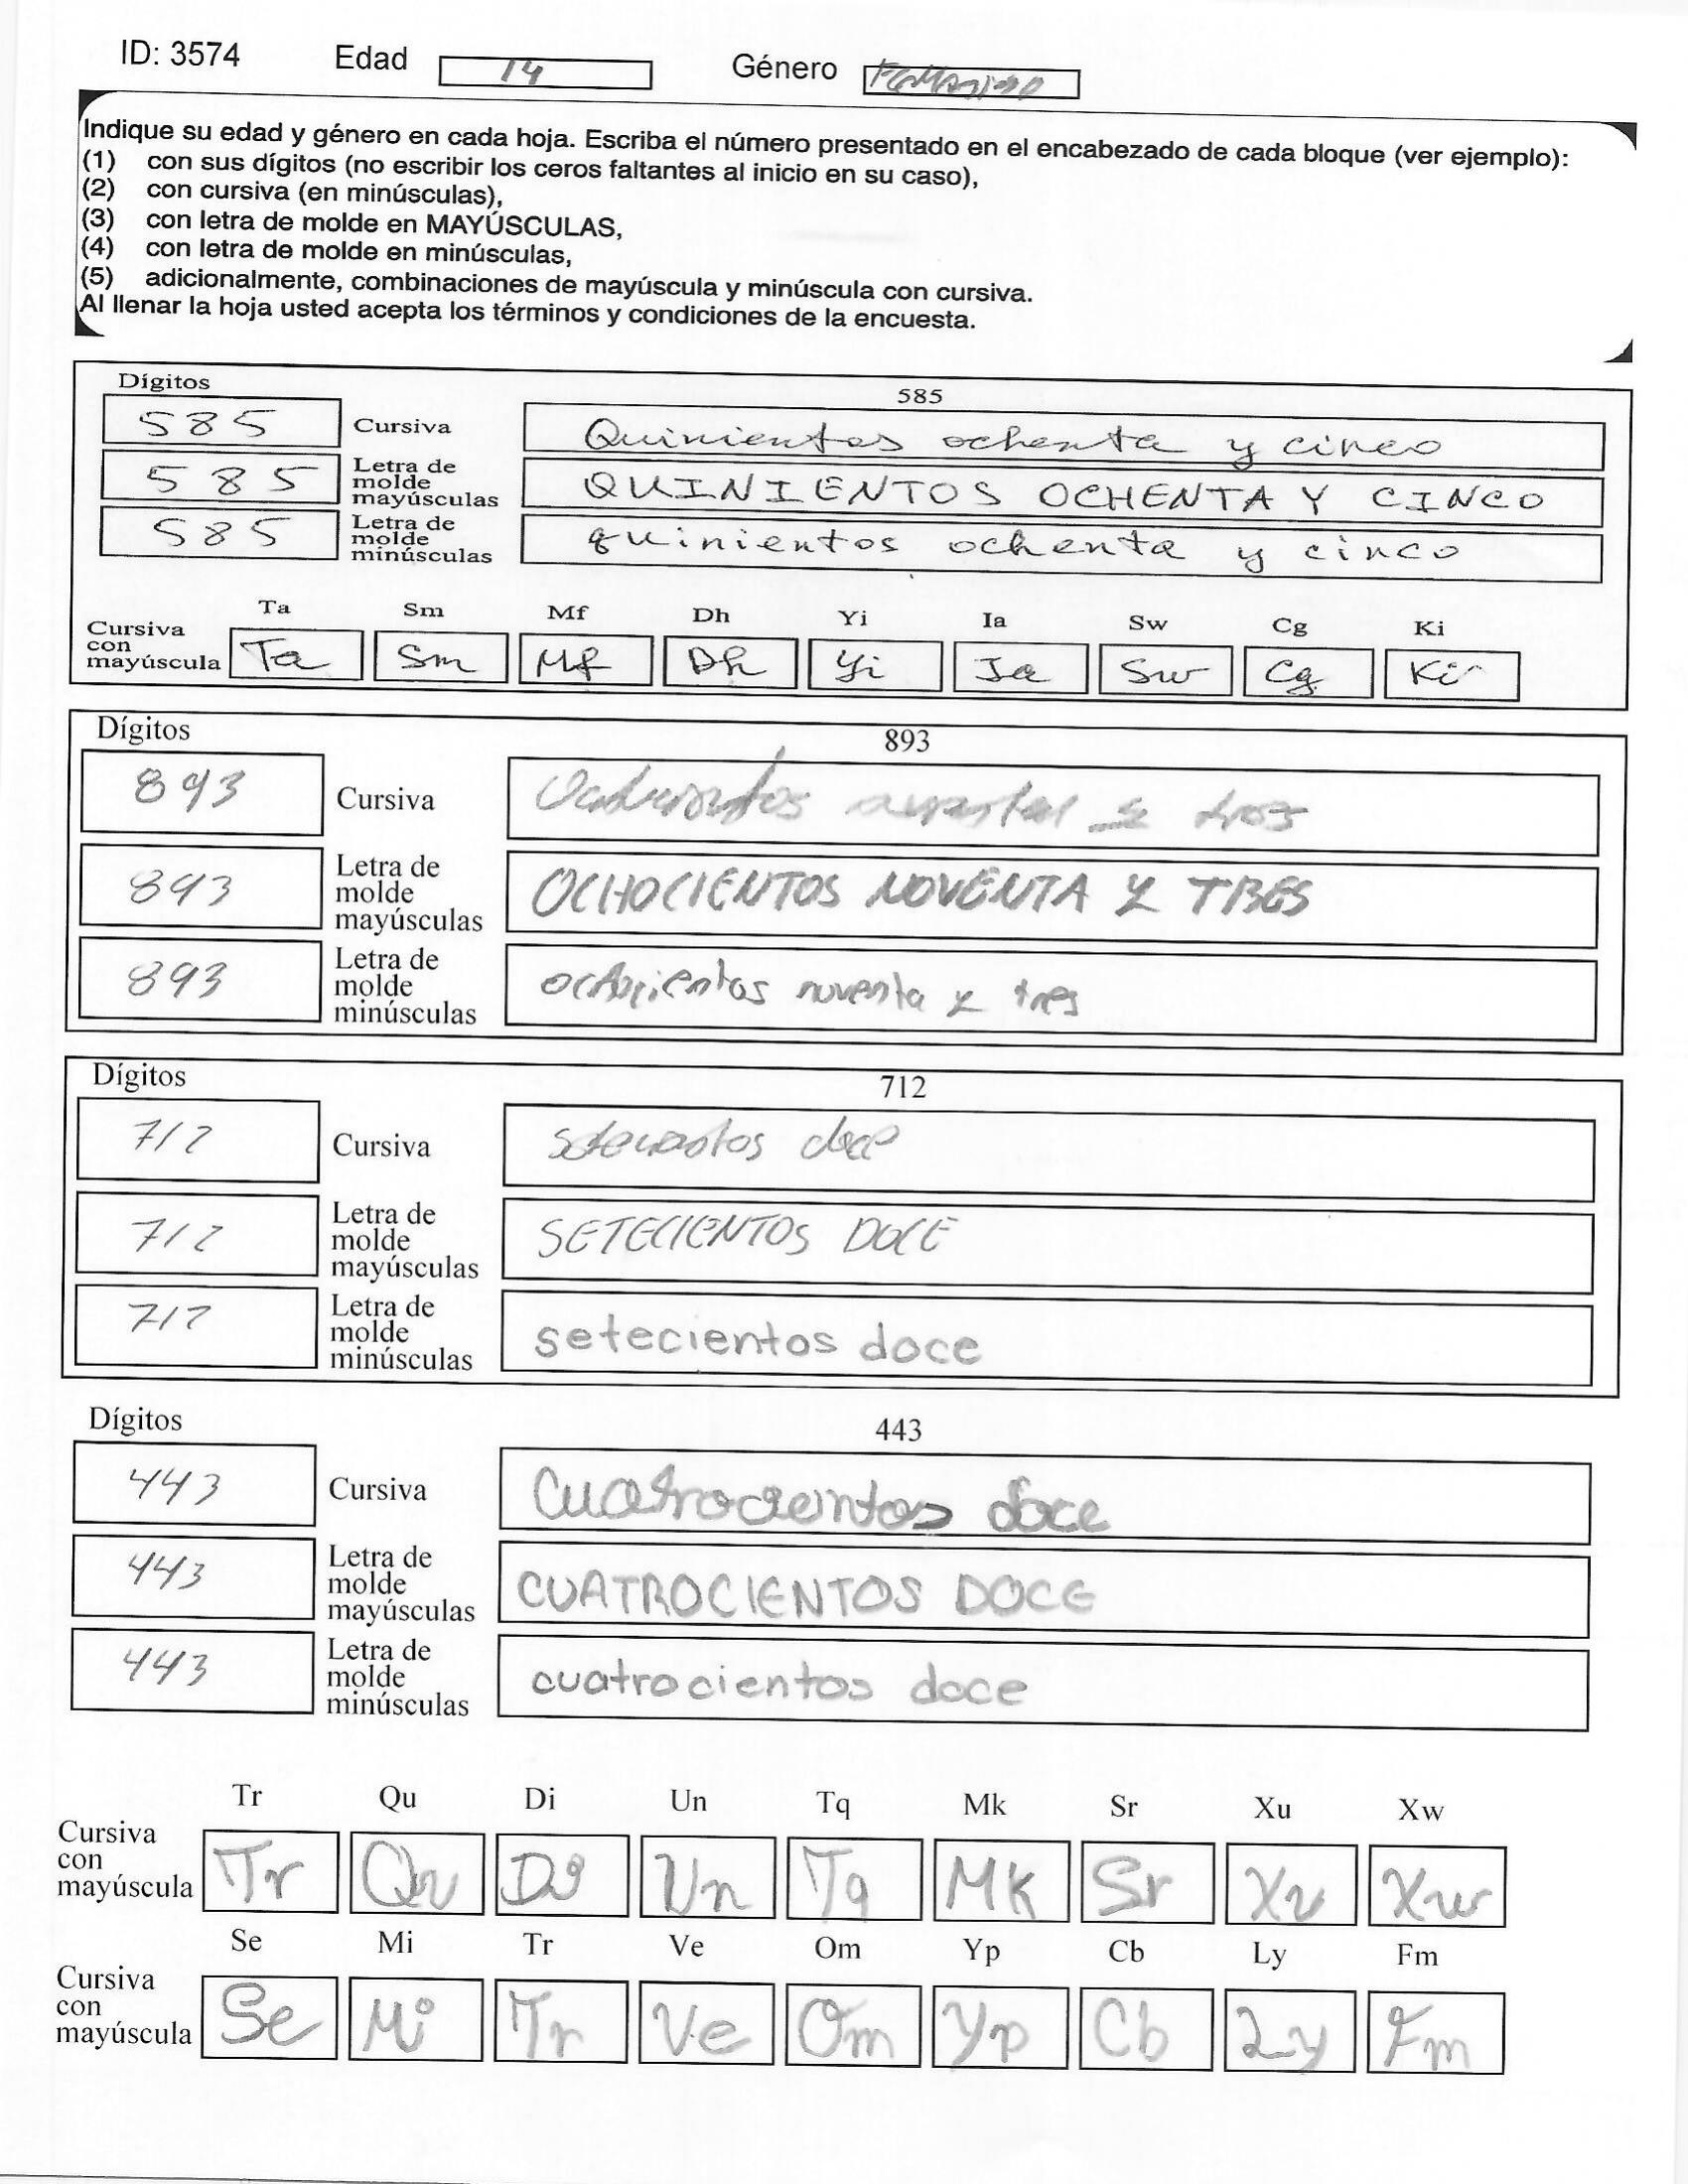 ID: 3574 Edad 14 Género FEMENINO
Indique su edad y género en cada hoja. Escriba el número presentado en el encabezado de cada bloque (ver ejemplo):
(1) con sus dígitos (no escribir los ceros faltantes al inicio en su caso),
(2) con cursiva (en minúsculas),
(3) con letra de molde en MAYÚSCULAS,
(4) con letra de molde en minúsculas,
(5) adicionalmente, combinaciones de mayúscula y minúscula con cursiva.
Al llenar la hoja usted acepta los términos y condiciones de la encuesta.
Dígitos 585
585 Cursiva Quinientos ochenta y cinco
585 Letra de molde mayúsculas QUINIENTOS OCHENTA Y CINCO
585 Letra de molde minúsculas quinientos ochenta y cinco
Ta Sm Mf Dh Yi Ia Sw Cg Ki
Cursiva con mayúscula Ta Sm Mf Dh Yi Ia Sw Cg Ki
Dígitos 893
893 Cursiva tres
893 Letra de molde mayúsculas OCHOCIENTOS NOVENTA Y TRES
893 Letra de molde minúsculas ochocientos noventa y tres
Dígitos 712
712 Cursiva doce
712 Letra de molde mayúsculas SETECIENTOS DOCE
712 Letra de molde minúsculas setecientos doce
Dígitos 443
443 Cursiva Cuatrocientos doce
443 Letra de molde mayúsculas CUATROCIENTOS DOCE
443 Letra de molde minúsculas cuatrocientos doce
Tr Qu Di Un Tq Mk Sr Xu Xw
Cursiva con mayúscula Tr Qu Di Un Tq Mk Sr Xu Xw
Se Mi Tr Ve Om Yp Cb Ly Fm
Cursiva con mayúscula Se Mi Tr Ve Om Yp Cb Ly Fm